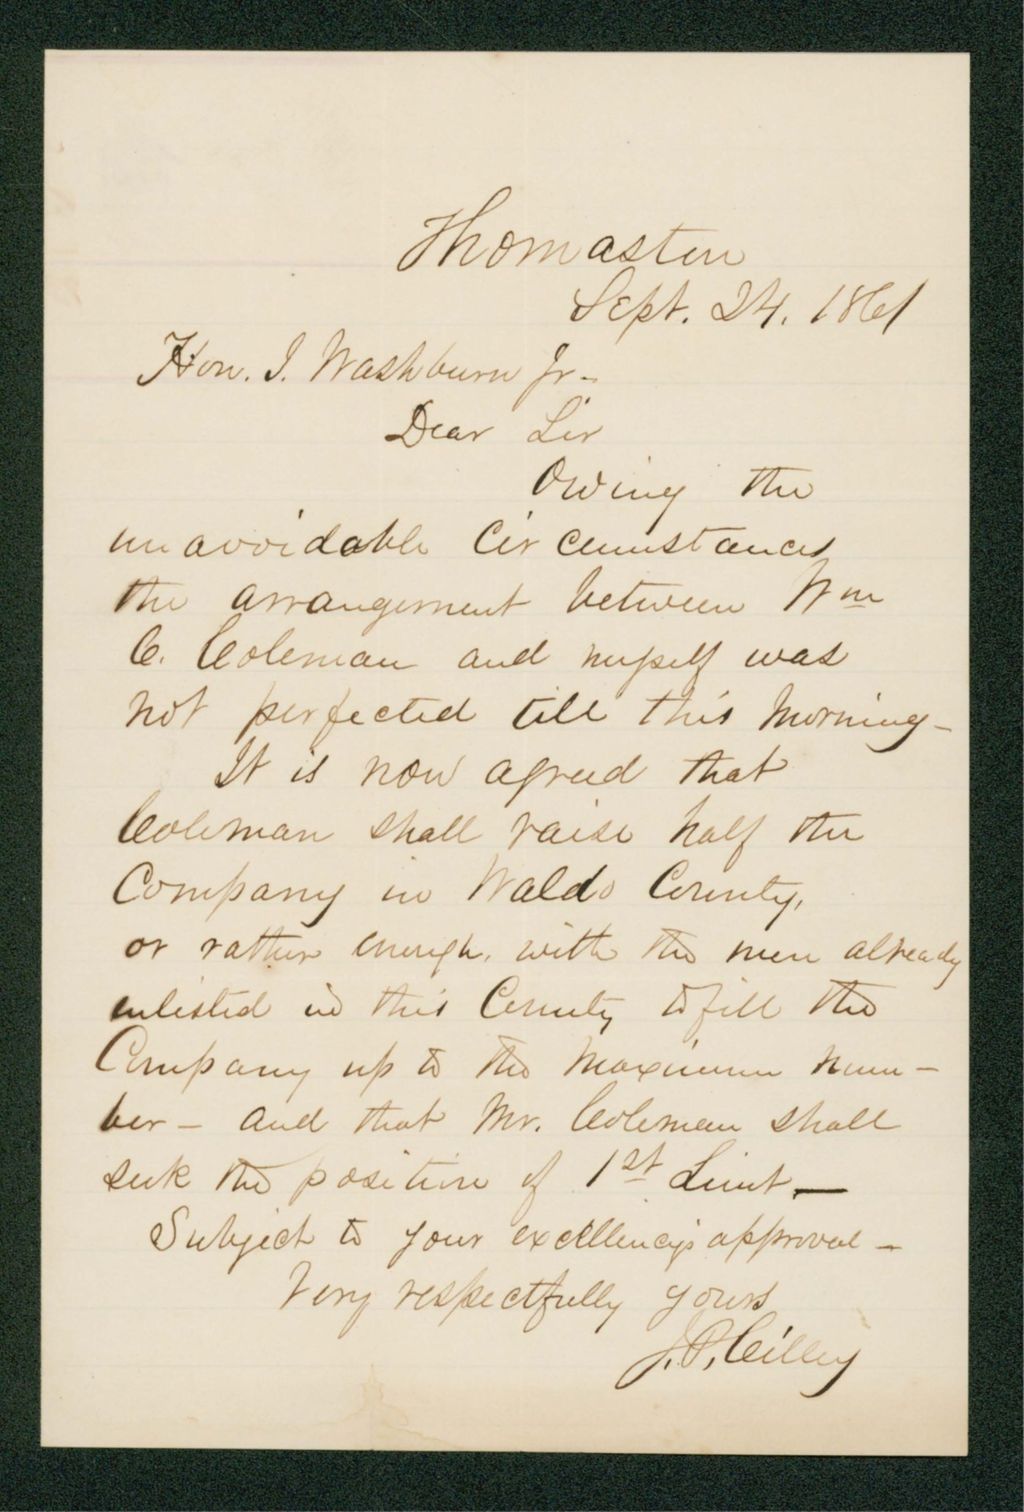 Thomaston
Sept. 24. 1861
Hon. I. Washburn Jr-
Dear Sir
Owing the
unavoidable Circumstances
the arrangement between Wm
C. Coleman and myself was
not perfected till this morning-
It is now agreed that
Coleman shall raise half the
Company in Waldo County,
or rather enough, with the men already
enlisted in this County to fill the
Company up to the maximum num-
ber - and that Mr. Coleman shall
seek the position of 1st Lieut. —
Subject to your excellency's approval -
Very respectfully yours
J. P. Cilley